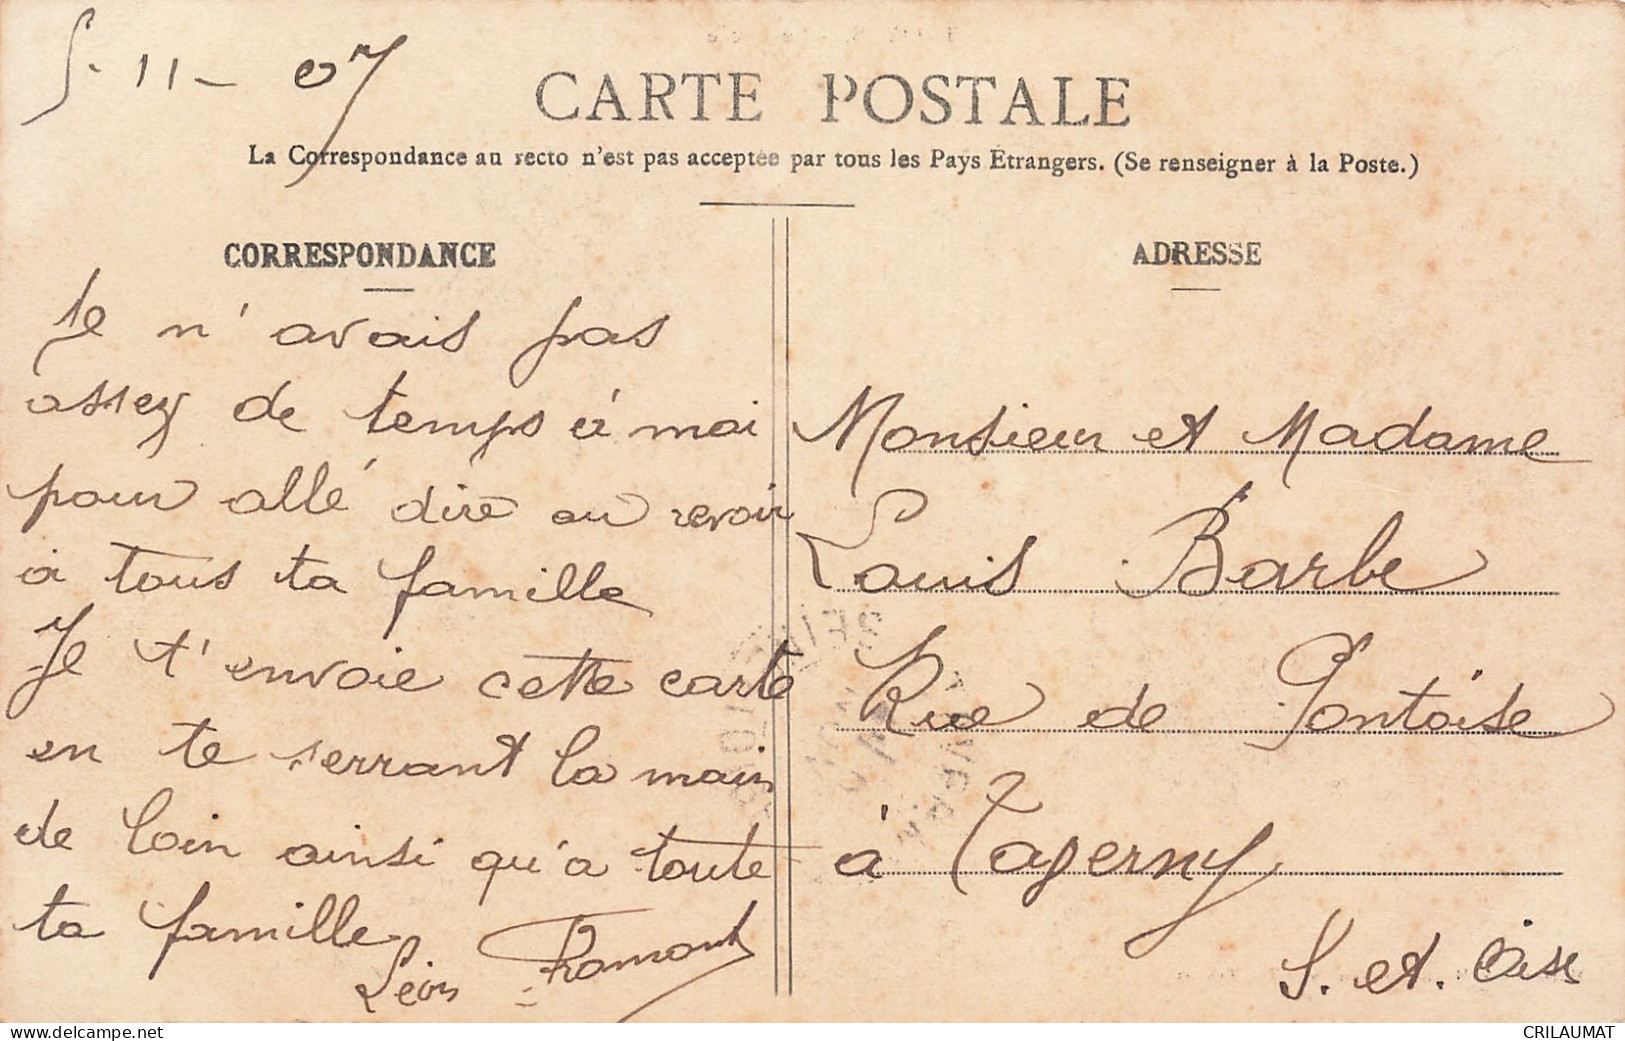 5-11-07
CARTE POSTALE
La Correspondance au recto n'est pas acceptée par tous les Pays Étrangers. (Se renseigner à la Poste.)
CORRESPONDANCE
Je n'avais pas
assez de temps à moi
pour allé dire au revoir
à tous ta famille
Je t'envoie cette carte
en te serrant la main
de loin ainsi qu'a toute
ta famille
Léon Framont
ADRESSE
Monsieur et Madame
Louis Barbe
Rue de Pontoise
à Taverny
S. et. Oise
www.delcampe.net
CRILAUMAT